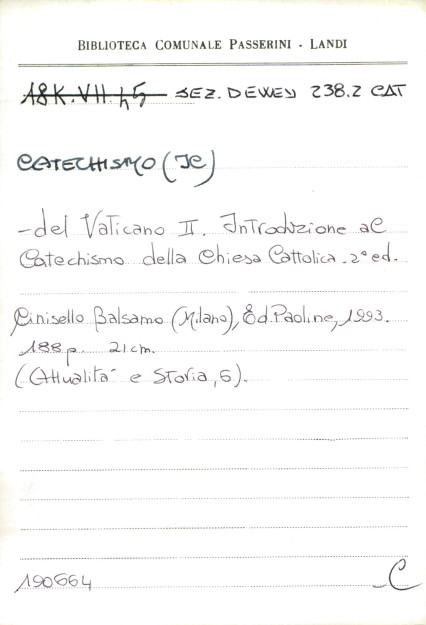 BIBLIOTECA COMUNALE PASSERINI - LANDI
18K.VII.45 SEZ. DEWEY 238.2 CAT
CATECHISMO (IL)
- del Vaticano II. Introduzione al
Catechismo della Chiesa Cattolica. 2ª ed.
Cinisello Balsamo (Milano), Ed. Paoline, 1993.
188 p. 21 cm.
(Attualità e Storia, 6).
190664
C